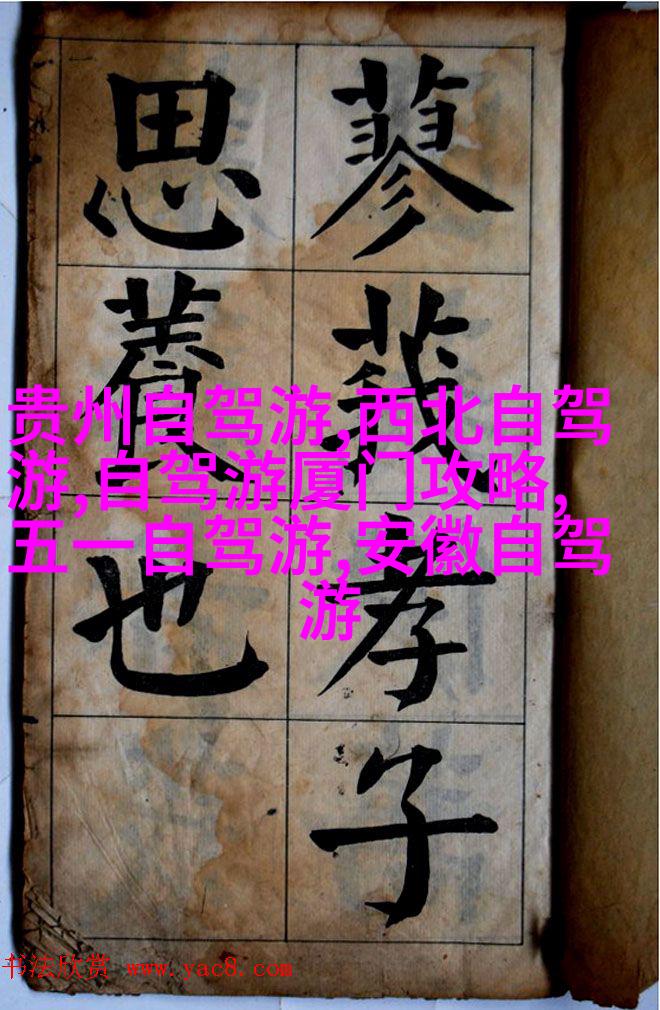 蓼莪孝子
思養也
贵州自驾游,西北自驾
游,自驾游厦门攻略,
五一自驾游,安徽自驾
游
书法欣赏 www.yac8.com